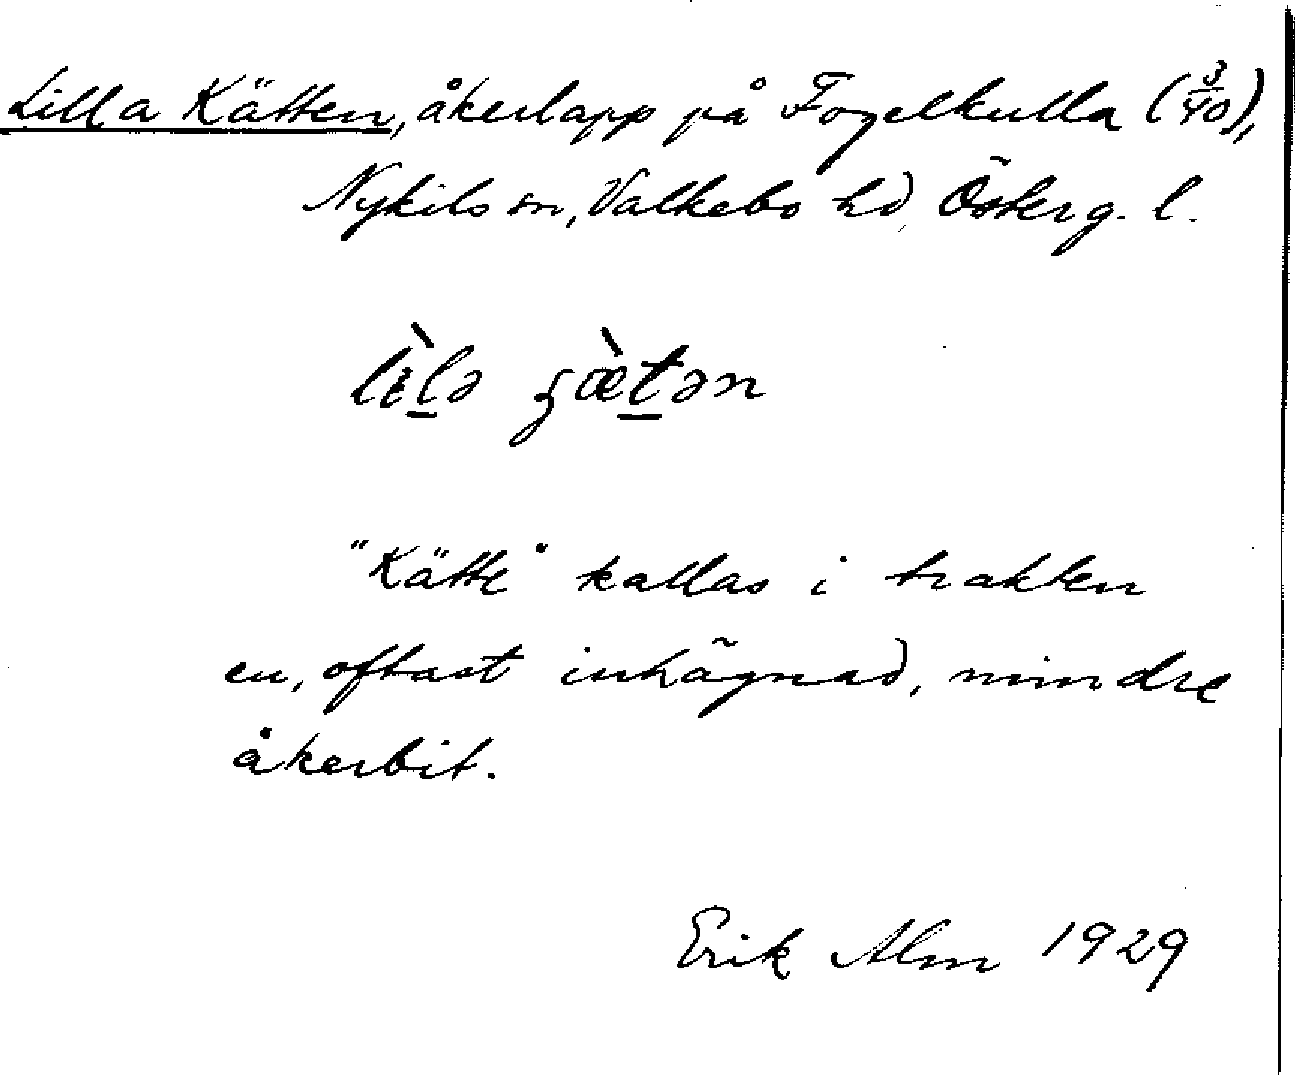 Lilla Kätten, åkerlapp på Fogelkulla (3/40),
Nykils sn, Valkebo hd, Österg. l.
lɩ̀l̠ə ʒæ̀t̠ən
"Kätte" kallas i trakten
en, oftast inhägnad, mindre
åkerbit.
Erik Alm 1929